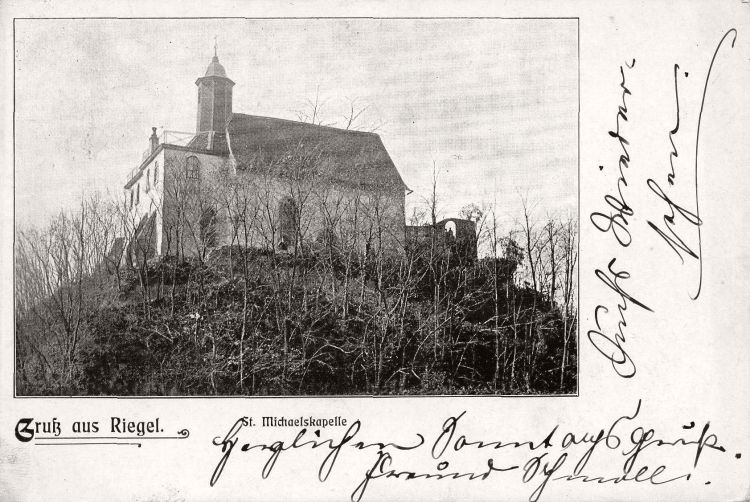 Gruß aus Riegel.
St. Michaelskapelle
Herzlichen Sonntagsgruß.
Freund Schmoll.
Aufs Wieder-
sehen!